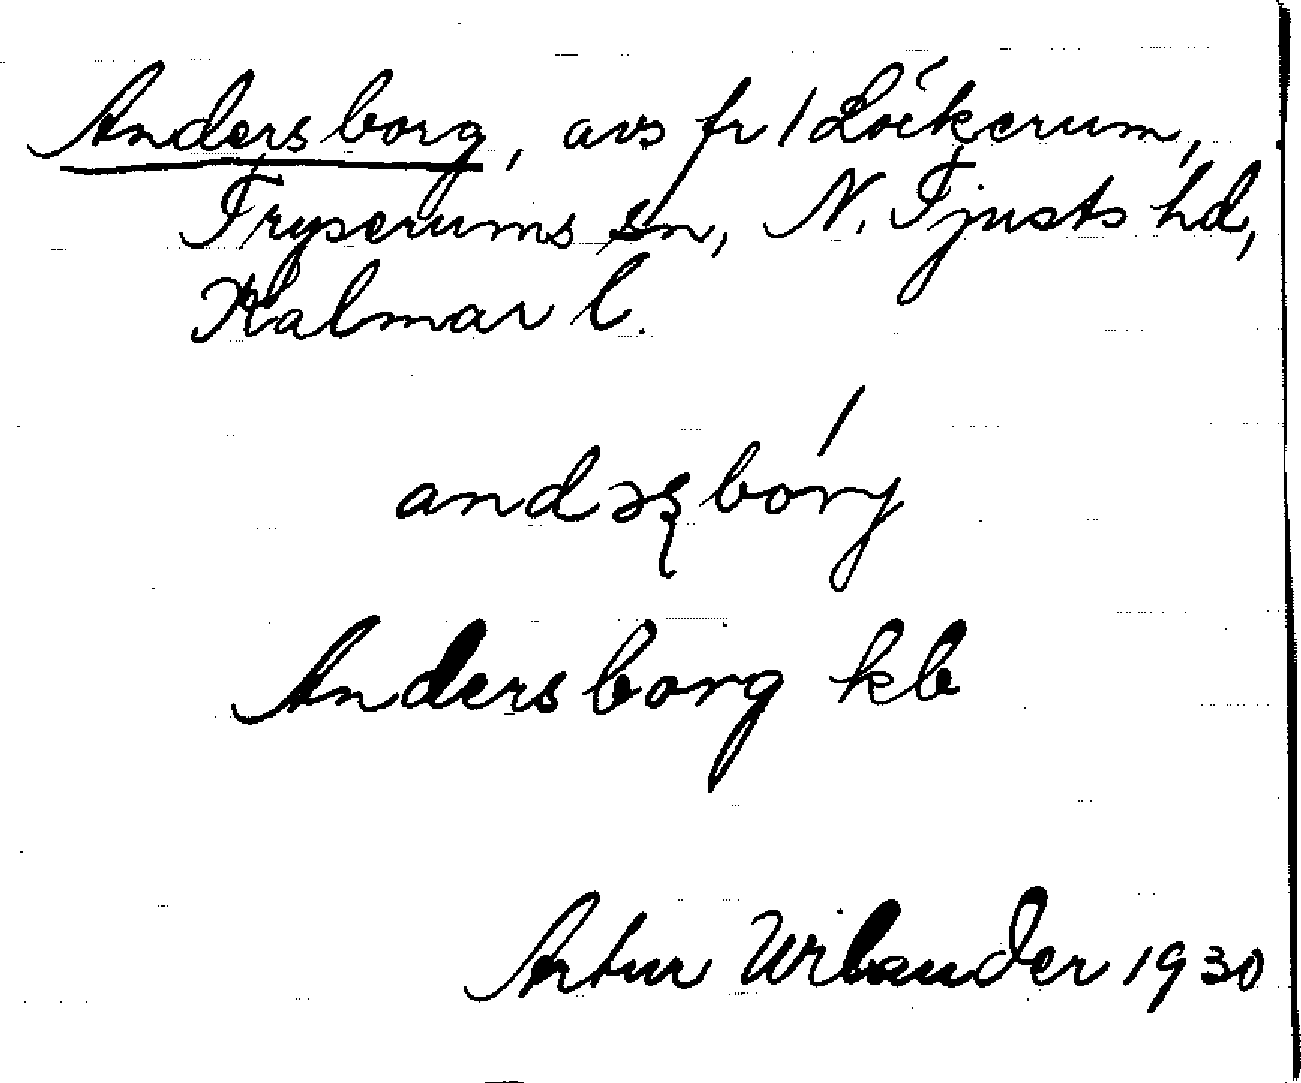 Andersborg, avs fr 1 Löckerum,
Tryserums sn, N. Tjusts hd,
Kalmar l.
andəʂborj
Andersborg kb
Artur Wilander 1930